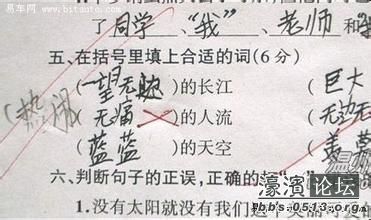 易车网
www.bitauto.com
了同学、“我”、老师和
五、在括号里填上合适的词(6分)
(一望无际)的长江 (巨大
(热闹 无痛)的人流 (无边无
(蓝蓝)的天空 (
六、判断句子的正误,正确的
1.没有太阳就没有我们这个美
濠滨论坛
bbs.0513.org